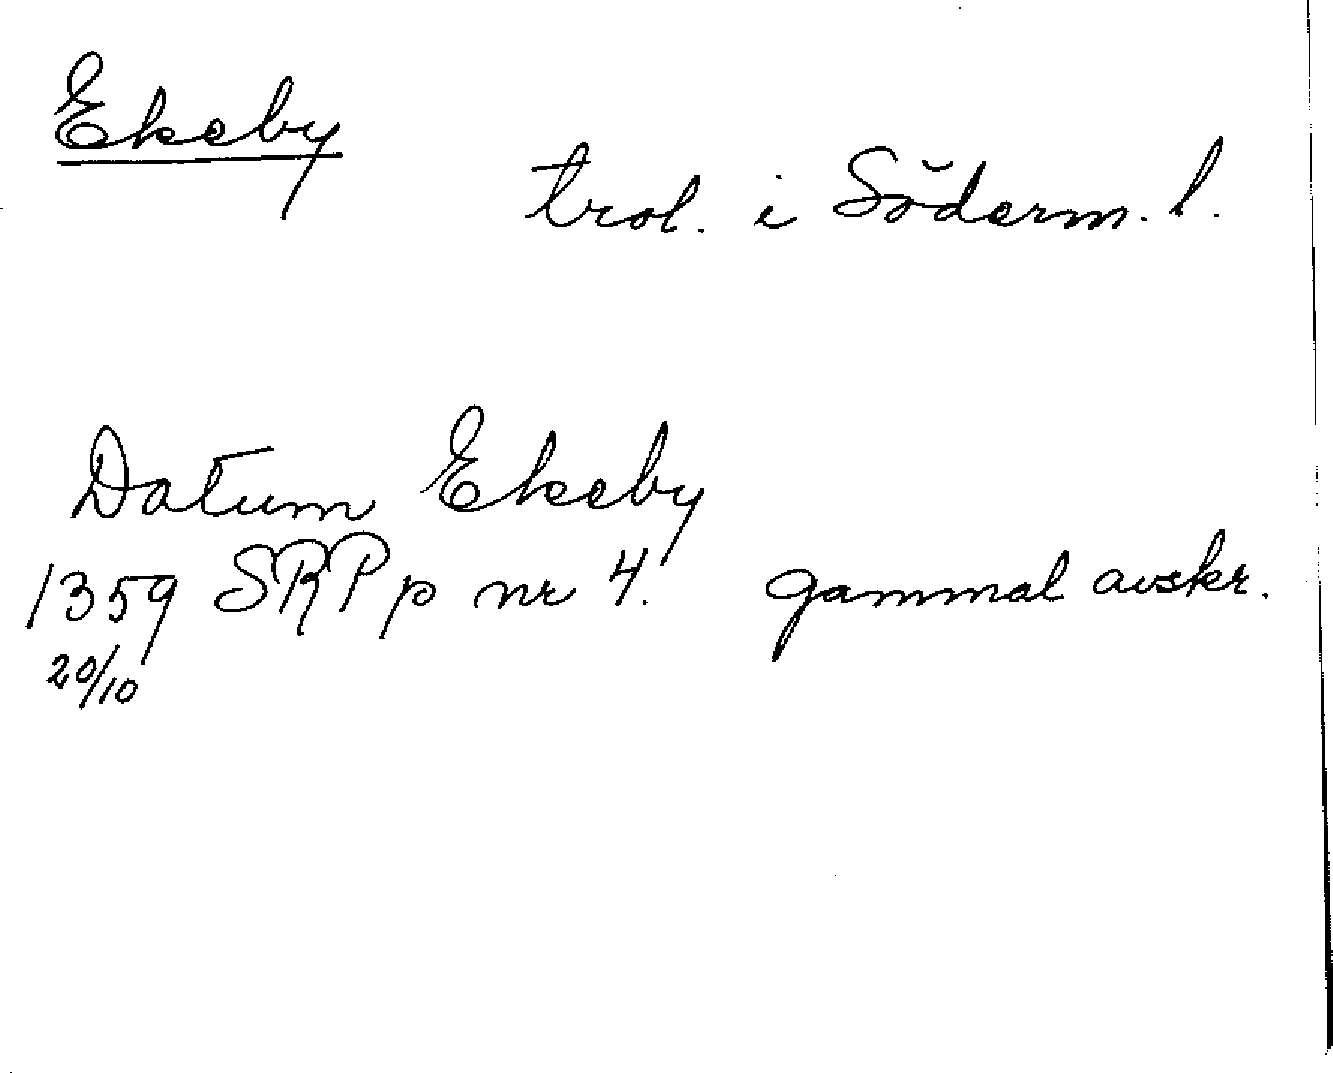 Ekeby
trol. i Söderm. l.
Datum Ekeby
1359 SRP p nr 4. gammal avskr.
20/10